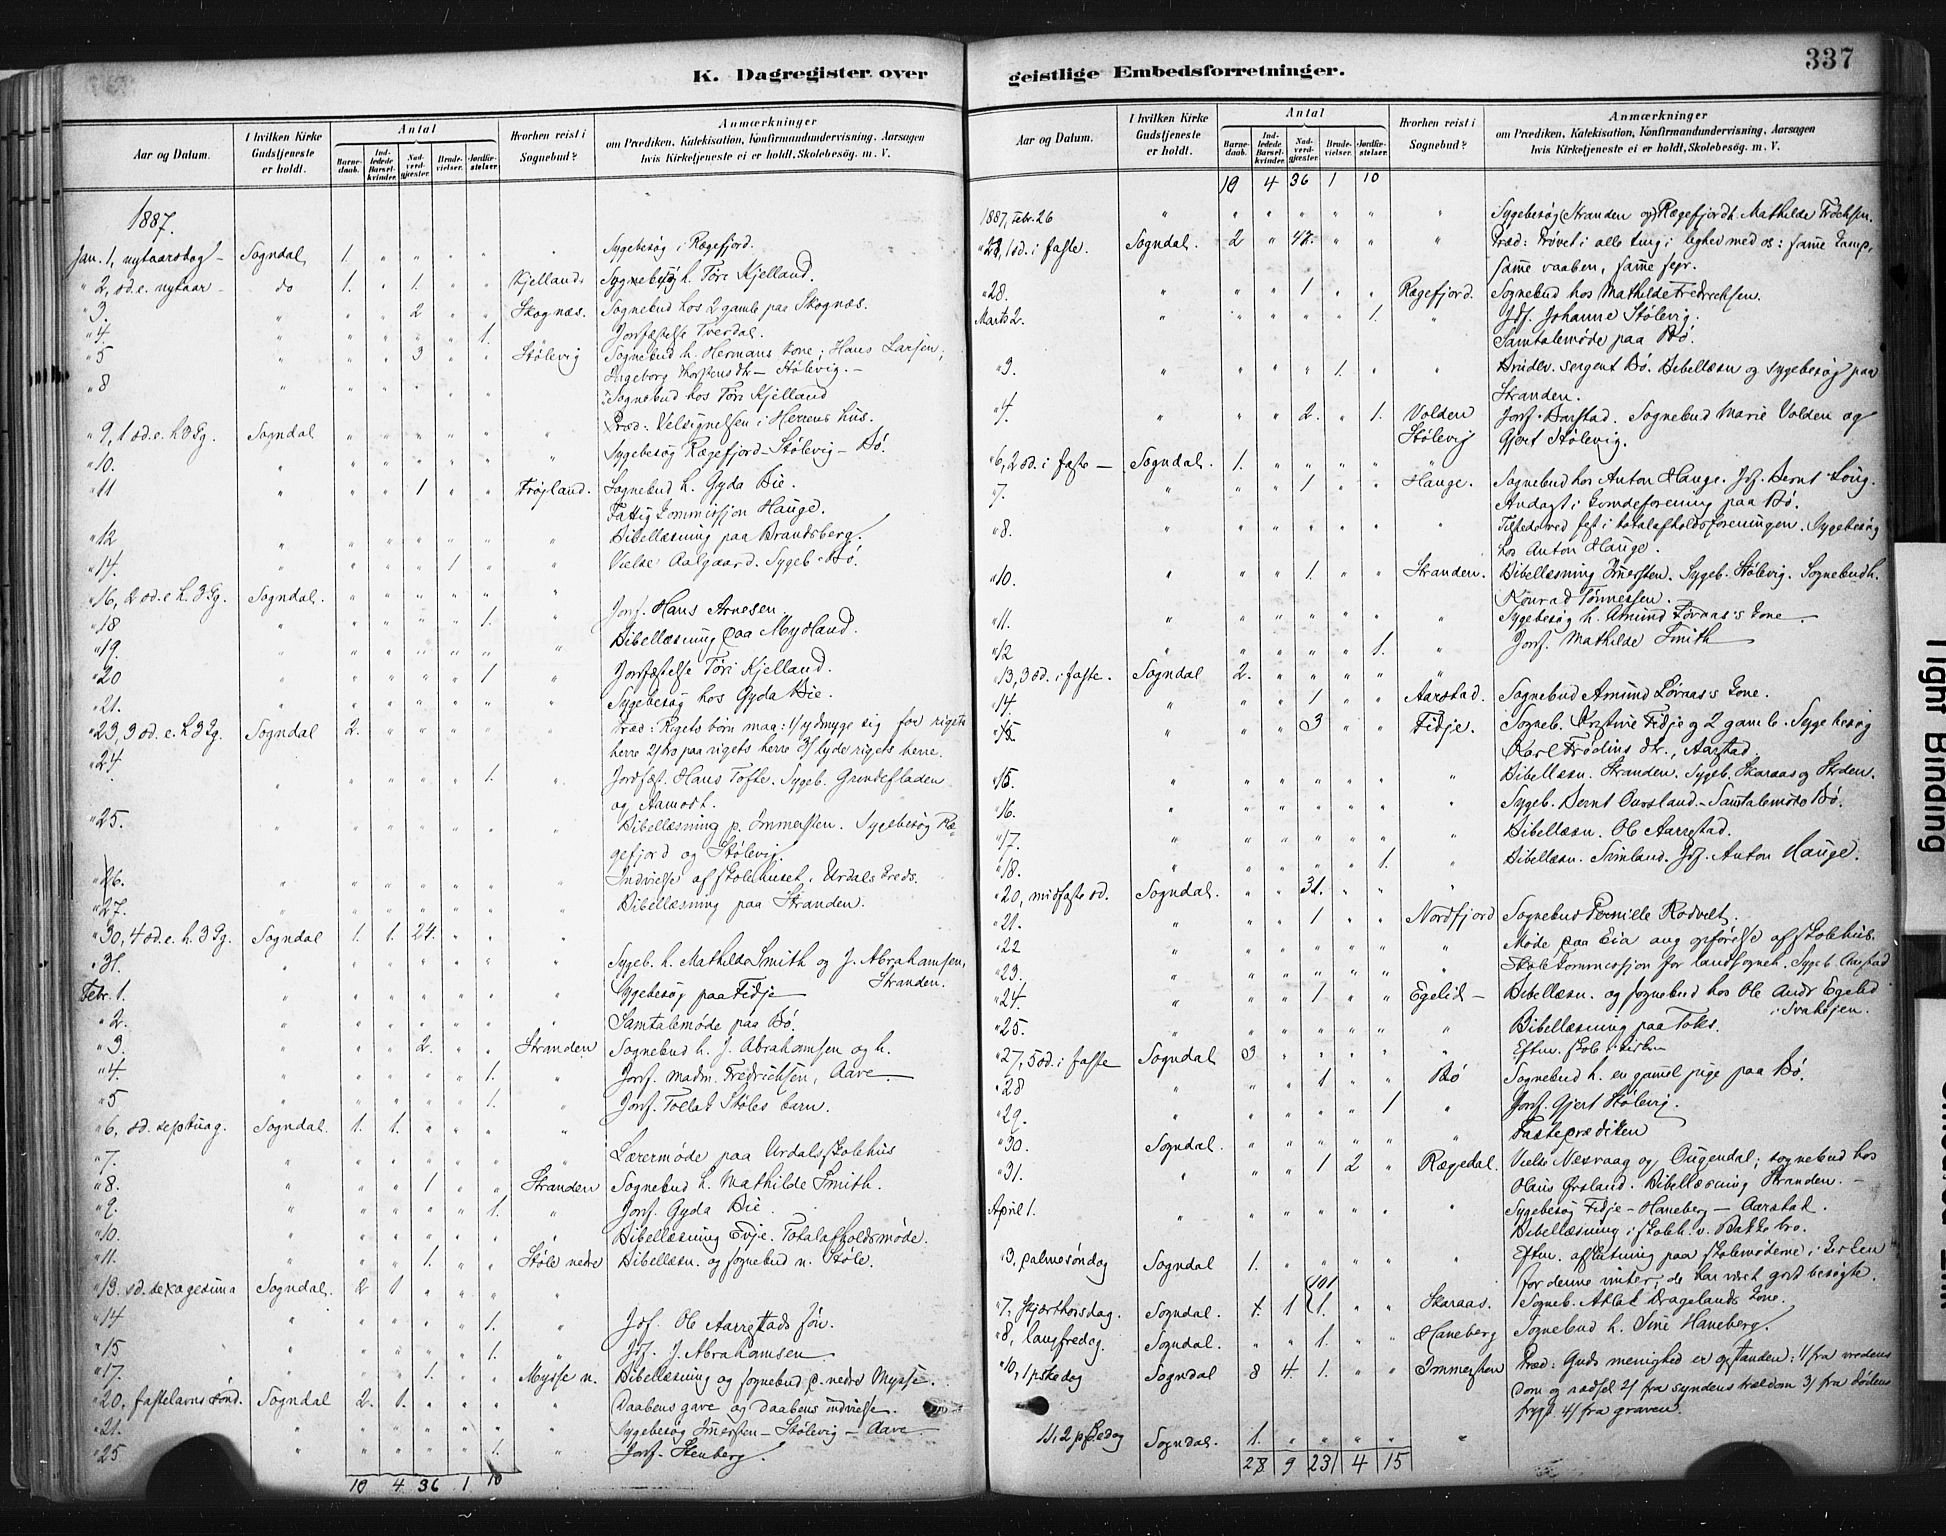 K. Dagregister over
Aar og Datum.
I hvilken Kirke Gudstjeneste er holdt.
Antal
Barnedaab.
Indledede Barselkvinder.
Nadverdgjæster.
Brudevielser.
Jordfæstelser.
Hvorhen reist i Sognebud?
Anmærkninger
om Prædiken, Katekisation, Konfirmandundervisning, Aarsagen
hvis Kirketjeneste ei er holdt, Skolebesøg. m. V.
1887.
Jan. 1, nytaarsdag - Sogndal 1. " " " " " Sygebesøg i Rægefjord.
" 2, sd. e. nytaar - do 1. " 1. " " Kjelland Sygebesøg h. Tøri Kjelland.
" 3. " " " 2 " " Skognæs. Sognebud hos 2 gamle paa Skognæs.
" 4. " " " " " 1. Jordfæstelse Tverdal.
" 5 " " " 3 " " Stølevig Sognebud h. Hermans kone; Hans Larsen;
Ingeborg Stølevig. -
" 8 " " " " " Sognebud hos Tøri Kjelland
Præd: Velsignelsen i Herrens hus.
" 9, 1 sd. e. h 3 Kg. Sogndal " " " " " "
" 10. " " " " " " " Sygebesøg Rægefjord - Stølevig - Bø.
" 11 " " " 1 " " Frøyland. Sognebud h. Gyda Bie.
Fattigkommission Hauge.
" 12 " " " " " " " Bibellæsning paa Brandsberg.
" 14. " " " " 1 " " Vielse Aalgaard. Sygeb. Bø.
" 16, 2 sd. e h. 3 Kg. Sogndal. " " " " " "
" 18 " " " " " 1. " Jordf. Hans Arnesen.
" 19. " " " " " " " Bibellæsning paa Mydland.
" 20 " " " " " 1 " Jordfæstelse Tøri Kjelland.
" 21. " " " " " " " Sygebesøg hos Gyda Bie.
" 23, 3 sd. e. h 3 Kg. Sogndal 2. " " " " " Præd: Rigets børn maa: 1/ ydmyge sig for rigets
herre 2/ tro paa rigets herre 3/ lyde rigets herre.
" 24 " " " " " 1. " Jordfæst. Hans Tofte. Sygeb. Grundefladen
og Aamodt.
" 25. " " " " " " " Bibellæsning p. Immersten. Sygebesøg Ræ-
gefjord og Stølevig.
" 26. " " " " " " " Indvielse af skolehuset i Urdals kreds.
" 27. " " " " " " " Bibellæsning paa Stranden.
" 30, 4 sd. e. h. 3 Kg. Sogndal 1. 1. 24. " " "
" 31. " " " " " " Sygeb. h. Mathilde Smith og J. Abrahamsen,
Stranden.
Febr. 1. " " " " " " " Sygebesøg paa Fidje
" 2. " " " " " " " Samtalemøde paa Bø.
" 3. " " " 2. " " Stranden Sognebud h. J. Abrahamsen og h.
" 4. " " " " " 1. " Jordf. madm. Fredrichsen, Aave
" 5 " " " " " 1. " Jordf. Tollak Støles barn.
" 6, sd. septuag. Sogndal. 1. 1. " " " "
" 7. " " " " " " " Lærermøde paa Urdals skolehus
" 8. " " " 1 " " Stranden Sognebud h. Mathilde Smith.
" 9. " " " " " 1. " Jordf. Gyda Bie.
" 10. " " " " " " " Bibellæsning Evje. Totalafholdsmøde.
" 11. " " " 1. " " Støle nedre Bibellæsn. og sognebud n. Støle.
" 13. sd. sexagesima Sogndal. 2 1 " " " "
" 14 " " " " " 1. " Jdf. Ole Aarrestads søn.
" 15 " " " " " 1. " Jdf. J. Abrahamsen
" 17. " " " 1. " " Mysse n. Bibellæsning og sognebud p. nedre Mysse.
" 20, fastelavns sønd. Sogndal 2. 1. " " " " Daabens gave og daabens indvielse.
" 21. " " " " " " " Sygebesøg Imersten - Stølevig - Aave
" 25 " " " " " 1. " Jordf. Stenberg.
19 4 36 1 10
337
geistlige Embedsforretninger.
Aar og Datum.
I hvilken Kirke Gudstjeneste er holdt.
Antal
Barnedaab.
Indledede Barselkvinder.
Nadverdgjæster.
Brudevielser.
Jordfæstelser.
Hvorhen reist i Sognebud?
Anmærkninger
om Prædiken, Katekisation, Konfirmandundervisning, Aarsagen
hvis Kirketjeneste ei er holdt, Skolebesøg. m. V.
19 4 36 1 10
1887, Febr. 26 " " " " " " " Sygebesøg Stranden og Rægefjord h. Mathilde
" 27, 1 sd. i faste. Sogndal. 2 " 47. " " " Præd: Prøvet i alle ting i lighed med os: samme kamp,
samme vaaben, samme sejr.
" 28. " " " 1 " " Rægefjord. Sognebud hos Mathilde Fredrichsen.
Marts 2. " " " " " 1. " Jdf. Johanne Stølevig.
Samtalemøde paa Bø.
" 3. " " " " 1. " " Brudev. sergent Bø. Bibellæsn og sygebesøg paa
Stranden.
" 4. " " " 2. " 1. Volden Jordf. Barstad. Sognebud Marie Volden og
Stølevig Gjert Stølevig.
" 6, 2 sd. i faste - Sogndal. 1. " " " " "
" 7. " " " 1 " " Hauge. Sognebud hos Anton Hauge. Jdf. Bernt
Andagt i kvindeforening paa Bø.
" 8. " " " " " " " Tilstede ved fest i totalafholdsforeningen. Sygebesøg
hos Anton Hauge.
" 10. " " " 1. " " Stranden. Bibellæsning Imersten. Sygeb. Stølevig. Sognebud h.
Konrad Tønnessen.
" 11. " " " " " " " Sygebesøg h. Amund Lørnas's kone
" 12 " " " " " 1. " Jordf. Mathilde Smith
" 13, 3 sd. i faste. Sogndal 2. " " " " "
" 14. " " " 1 " " Aarstad. Sognebud Amund Lørnas's kone.
" 15 " " " 3 " " Fidje. Sogneb. Kristine Fidje og 2 gamle. Sygebesøg
Karl Frødins dtr., Aarstad.
" 15. " " " " " " " Bibellæsn. Stranden. Sygeb. Skaraas og Stranden.
" 16. " " " " " " " Sygeb. Bernt Oursland. - Samtalemøde Bø.
" 17. " " " " " " " Bibellæsn. Ole Aarrestad.
" 18. " " " " " 1. " Bibellæsn. Svinland. Jdf. Anton Hauge.
" 20, midfaste sd. Sogndal. " " 31. " " "
" 21. " " " 1 " " Nordfjord Sognebud Pernille Rodvelt.
" 22 " " " " " " " Møde paa Eia ang opførelse af skolehus.
" 23. " " " " " " " Skolekommission for landsogneh. Sygeb. Aarstad
" 24. " " " 1 " " Egelid - Bibellæsn. og sognebud hos Ole Andr Egelid
i Svahøjen.
" 25. " " " " " " " Bibellæsning paa Toks.
" 27, 5 sd. i faste Sogndal 3 " " " " " Eftm. skole i kirken
" 28 " " " 1 " " Bø Sognebud h. en gammel pige paa Bø.
" 29. " " " " " 1 " Jordf. Gjert Stølevig.
" 30. Sogndal. " " " " " " Fasteprædiken
" 31. " " " 1 2 " Rægedal. Vielse Næsvaag og Ougendal; sognebud hos
Hans Ørsland. Bibellæsning Stranden. -
April 1. " " " " " " " Sygebesøg Fidje - Haneberg - Aarstad.
Bibellæsning i skoleh. v. Bakke bro.
" 3, palmesøndag Sogndal 1. " " " " " Eftm. afslutning paa skolemøderne i kirken
for denne vinter; de har vært godt besøgte.
" 7, skjærthorsdag. Sogndal. 7. 1 101 1. " " Skaraas. Sogneb. Aslak Dragelands kone.
" 8, langfredag. Sogndal. " " 1. " " Haneberg Sognebud h. Sine Haneberg.
" 10, 1 pskedag Sogndal 8 4. 1. " " Immersten Præd: Guds menighed er opstanden: 1/ fra vredens
dom og rædsel 2/ fra syndens trældom 3/ fra dødens
frygt 4/ fra graven.
11, 2 pskedag Sogndal. 1. " " " " "
28 9 231 4 15
Tight Binding